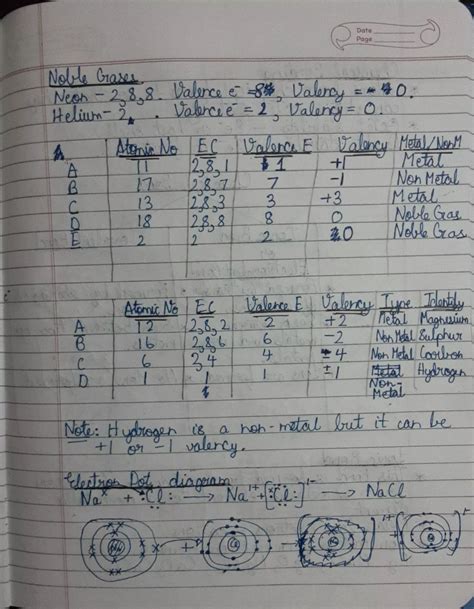 Date
Page
Noble Gases
Neon - 2,8,8. Valence e⁻ = 8, Valency = 0.
Helium - 2. Valence e⁻ = 2, Valency = 0.
Atomic No EC Valence E Valency Metal/NonM
A 11 2,8,1 1 +1 Metal
B 17 2,8,7 7 -1 Non Metal
C 13 2,8,3 3 +3 Metal
D 18 2,8,8 8 0 Noble Gas
E 2 2 2 0 Noble Gas
Atomic No EC Valence E Valency Type Identify
A 12 2,8,2 2 +2 Metal Magnesium
B 16 2,8,6 6 -2 Non Metal Sulphur
C 6 2,4 4 ±4 Non Metal Carbon
D 1 1 1 ±1 Metal Hydrogen
Non-
Metal
Note: Hydrogen is a non-metal but it can be
+1 or -1 valency.
Electron Dot diagram
Naˣ + Cl: → Na¹⁺ [:Cl:]¹⁻ → NaCl
Na + Cl → Na ]¹⁺ Cl ]¹⁻